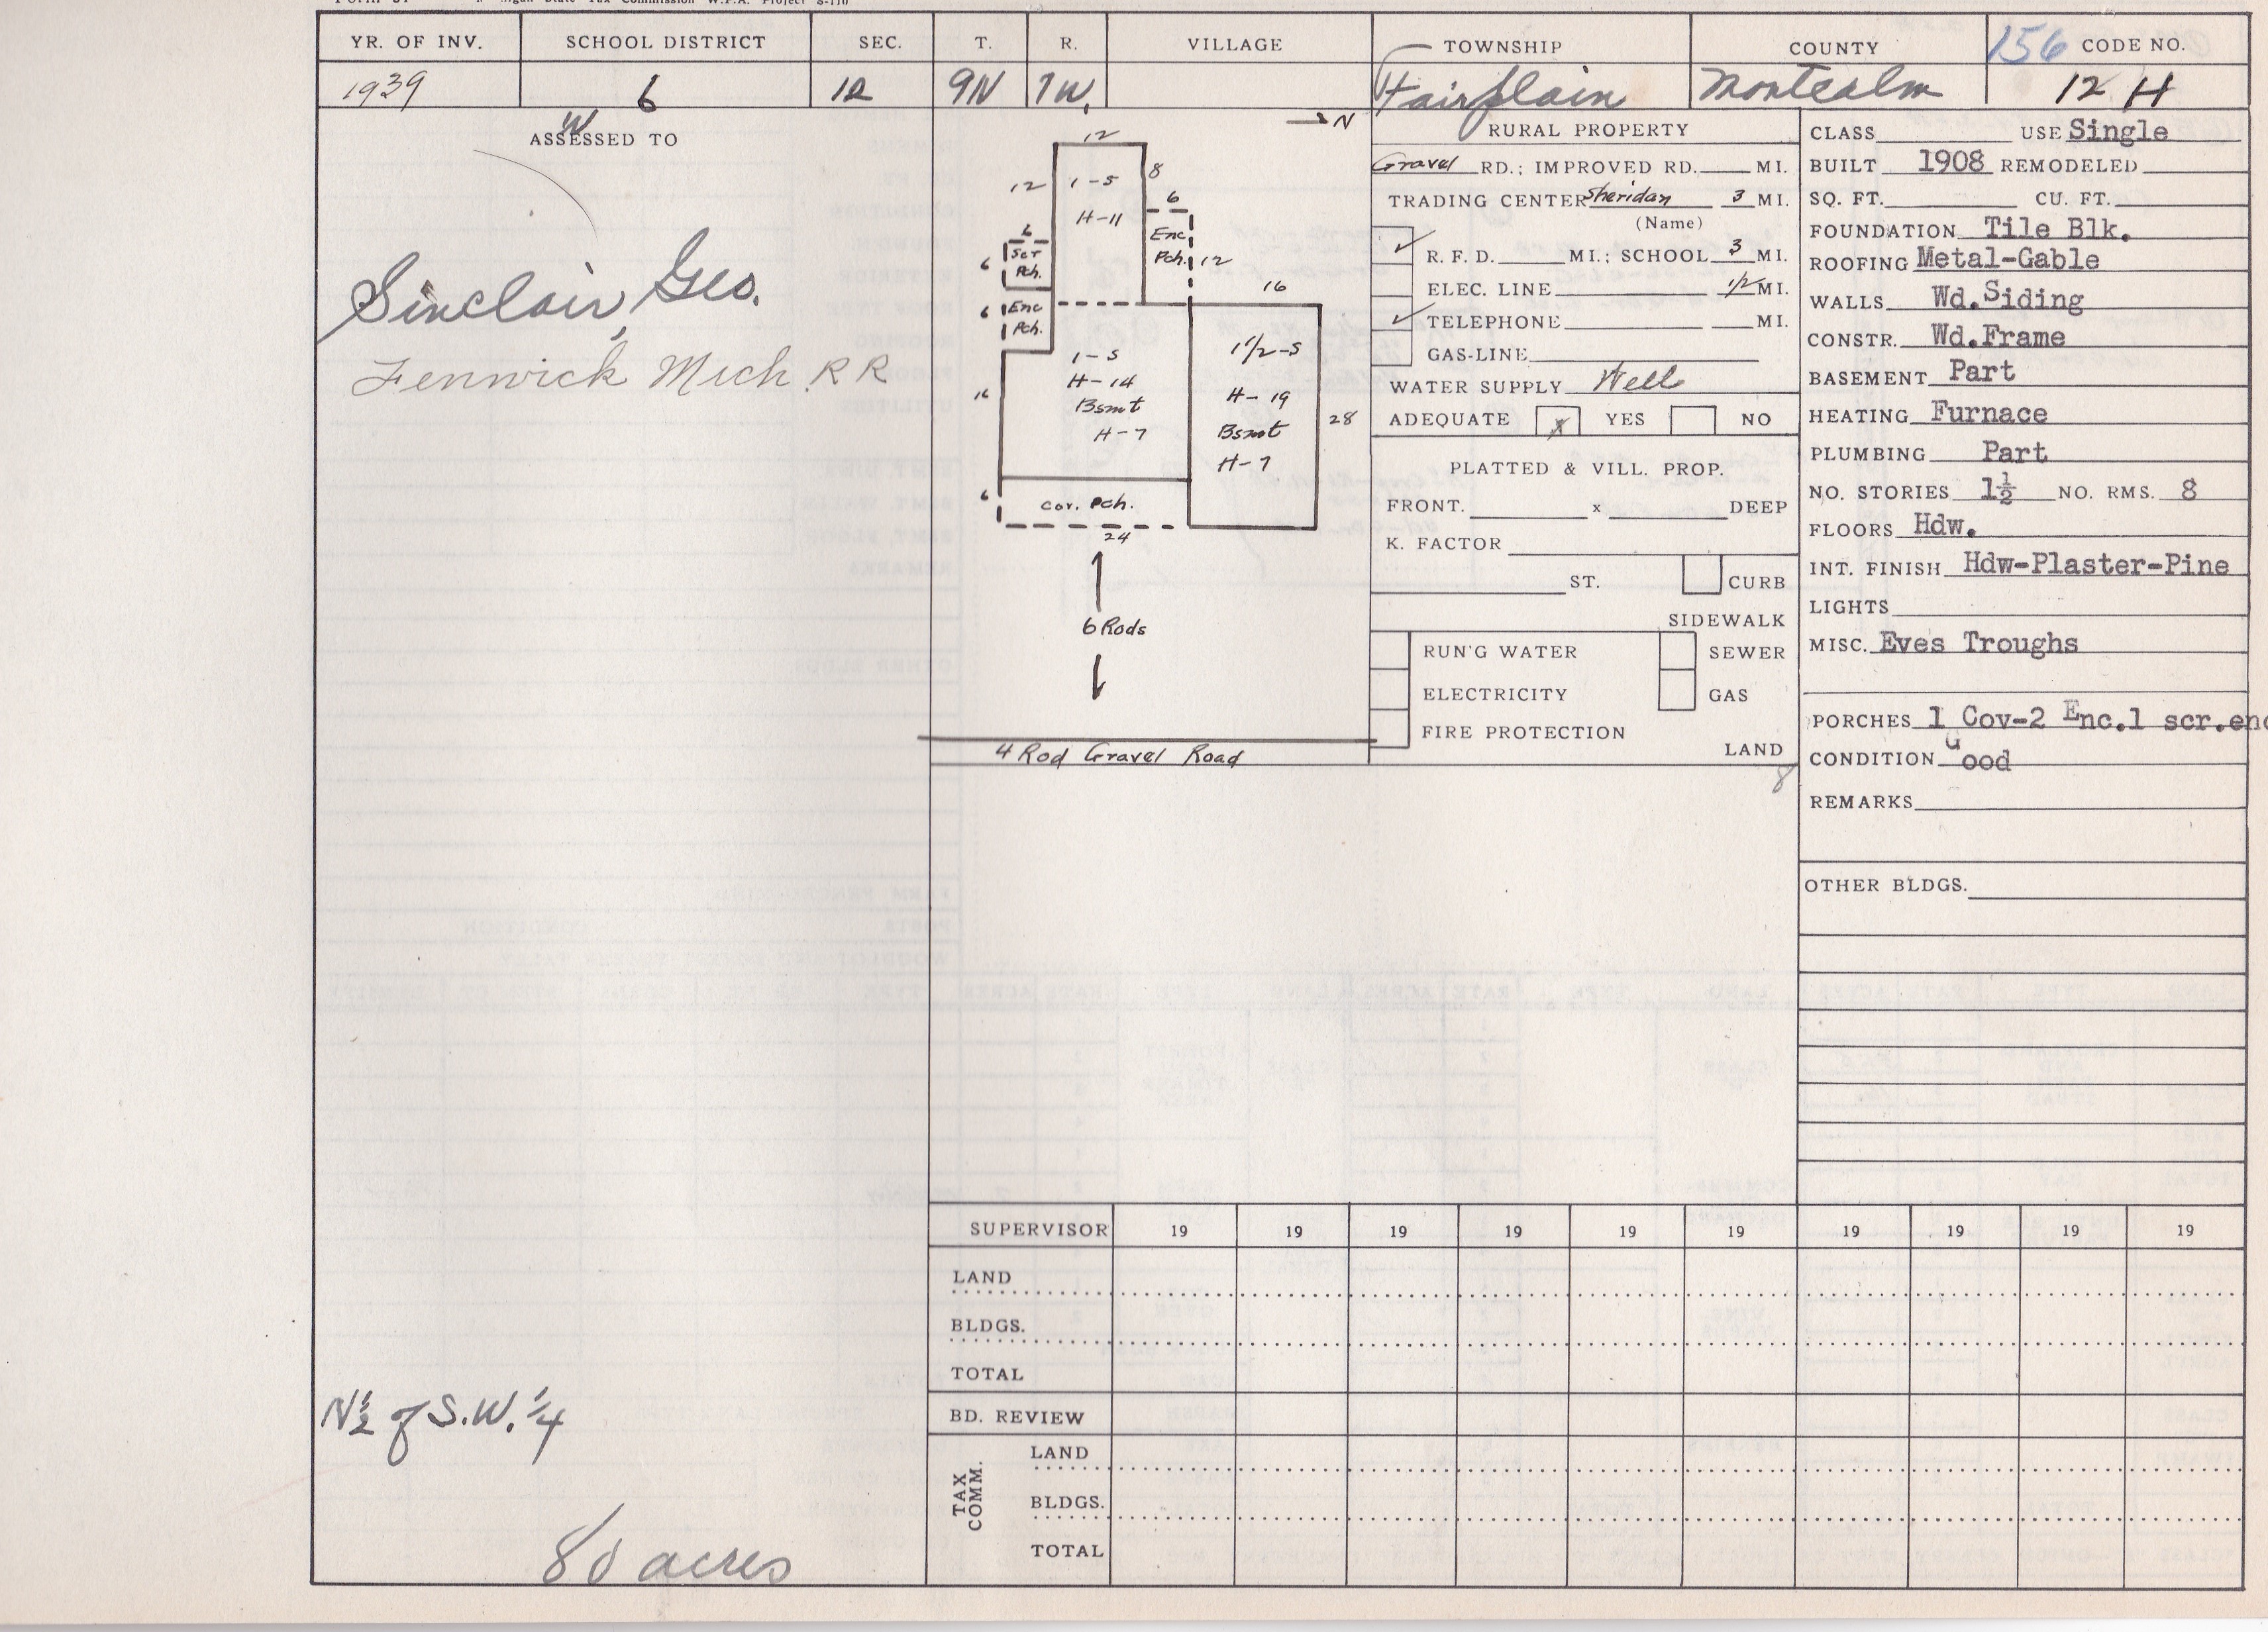 State Tax Commission W.P.A. Project S-170
YR. OF INV. SCHOOL DISTRICT SEC. T. R. VILLAGE TOWNSHIP COUNTY 156 CODE NO.
1939 6 12 9N 7W. Fairplain Montcalm 12 H
W
ASSESSED TO
Sinclair, Geo.
Fenwick Mich. RR
N½ of S.W. ¼
80 acres
N
12
12 1-S 8
H-11
6
Enc.
Pch. 12
6
6 Scr
Pch.
6 Enc
Pch.
16
1-S
H-14
Bsmt
H-7
16
1½-S
H-19
Bsmt
H-7
28
6 Cov. Pch.
24
6 Rods
4 Rod Gravel Road
RURAL PROPERTY
Gravel RD.; IMPROVED RD. MI.
TRADING CENTER Sheridan 3 MI.
(Name)
✓ R. F. D. MI.; SCHOOL 3 MI.
ELEC. LINE 1/2 MI.
✓ TELEPHONE MI.
GAS-LINE
WATER SUPPLY Well
ADEQUATE x YES NO
PLATTED & VILL. PROP.
FRONT. x DEEP
K. FACTOR
ST. CURB
SIDEWALK
RUN'G WATER SEWER
ELECTRICITY GAS
FIRE PROTECTION
LAND
8
CLASS USE Single
BUILT 1908 REMODELED
SQ. FT. CU. FT.
FOUNDATION Tile Blk.
ROOFING Metal-Gable
WALLS Wd.Siding
CONSTR. Wd.Frame
BASEMENT Part
HEATING Furnace
PLUMBING Part
NO. STORIES 1½ NO. RMS. 8
FLOORS Hdw.
INT. FINISH Hdw-Plaster-Pine
LIGHTS
MISC. Eves Troughs
PORCHES 1 Cov-2 Enc.1 scr.enc
CONDITION Good
REMARKS
OTHER BLDGS.
SUPERVISOR 19 19 19 19 19 19 19 19 19 19
LAND
BLDGS.
TOTAL
BD. REVIEW
TAX COMM.
LAND
BLDGS.
TOTAL